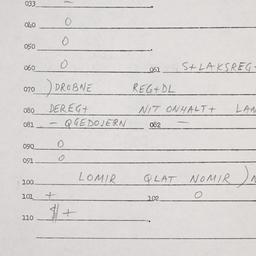 033 –
040 0
050 0
060 0 061 S+LAKSREG-
070 ) DROBNE REG+DL
080 DEREG+ NIT ONHALT+ LAN
081 – QGEDOJERN 082 –
090 0
091 0
100 LOMIR QLAT NOMIR )
101 + 102 0
110 $+